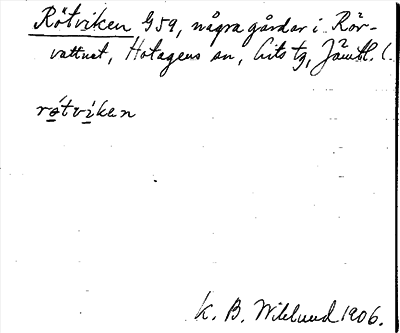 Rötviken G59, några gårdar i Rör-
vattnet, Hotagens sn, Lits tg, Jämtl. l.
rötviken
K. B. Wiklund 1906.